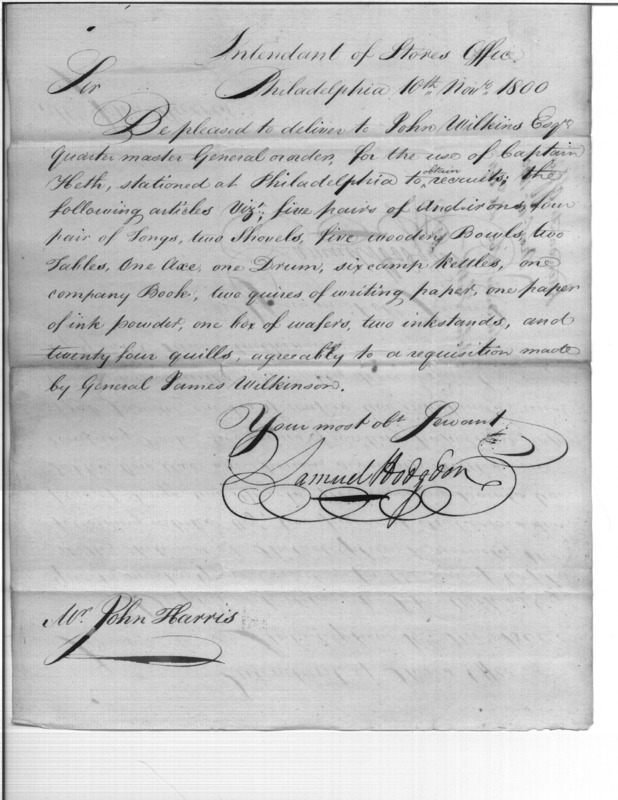 Intendant of Stores Office
Philadelphia 10th Novr. 1800
Sir
Be pleased to deliver to John Wilkins Esqr.
Quarter master General or order, for the use of Captain
Heth, stationed at Philadelphia to obtain recruits; the
following articles Vizt. five pairs of Andirons, four
pair of Tongs, two Shovels, five wooden Bowls, two
Tables, One Axe, one Drum, six camp kettles, one
company Book, two quires of writing paper, one paper
of ink powder, one box of wafers, two inkstands, and
twenty four quills, agreably to a requisition made
by General James Wilkinson.
Your most obt Servant
Samuel Hodgdon
Mr. John Harris